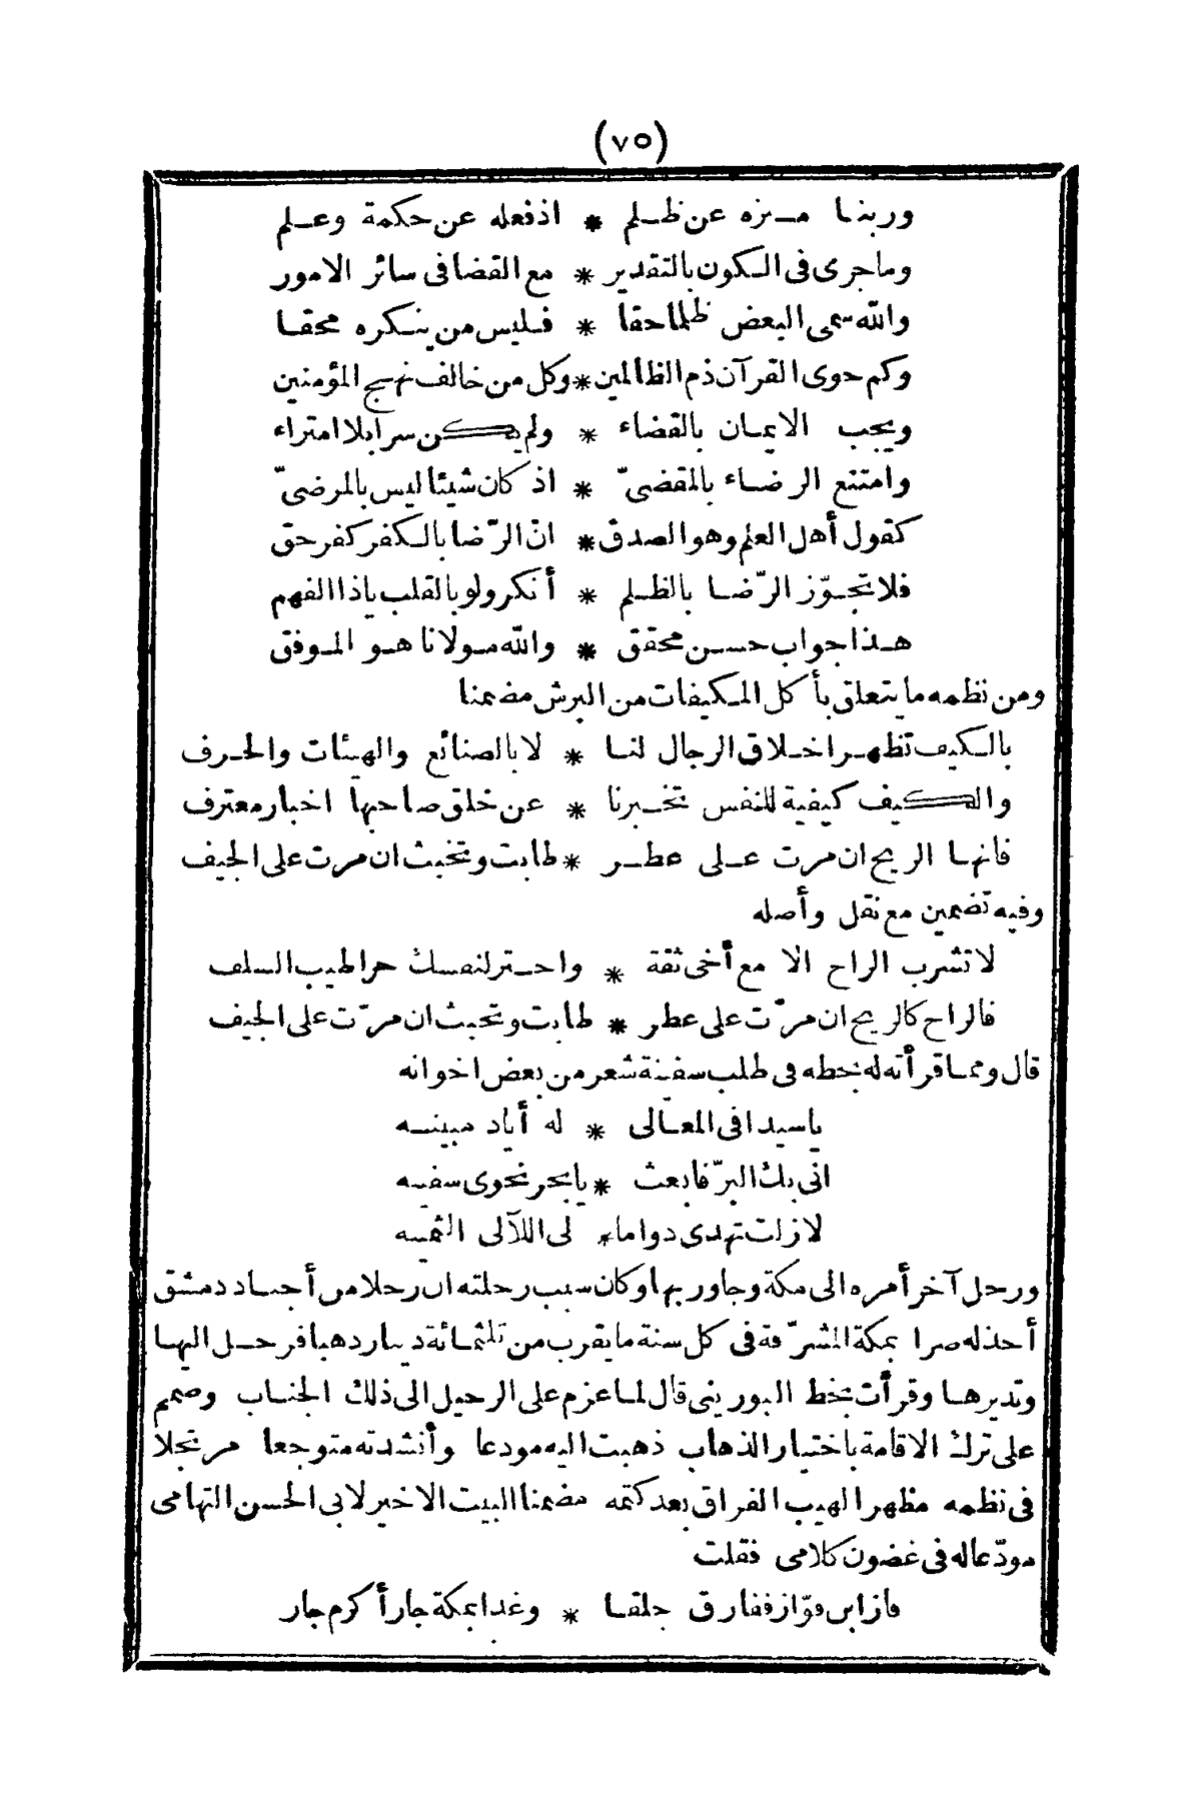 (٧٥)
وربنا منزه عن ظلم * اذ فعله عن حكمة وعلم
وما جرى فى الكون بالتقدير * مع القضا فى سائر الامور
والله سمى البعض ظلما حقا * فليس من ينكره محقا
وكم حوى القرآن ذم الظالمين * وكل من خالف نهج المؤمنين
ويجب الايمان بالقضاء * ولم يكن سرا بلا امتراء
وامتنع الرضاء بالمقضىّ * اذ كان شيئا ليس بالمرضىّ
كقول أهل العلم وهو الصدق * انّ الرّضا بالكفر كفر حق
فلا تجوّز الرّضا بالظلم * أنكر ولو بالقلب ياذا الفهم
هذا جواب حسن محقق * والله مولانا هو الموفق
ومن نظمه ما يتعلق بأكل المكيفات من البرش مضمنا
بالكيف تظهر اخلاق الرجال لنا * لا بالصنائع والهيئات والحرف
والكيف كيفية للنفس تخبرنا * عن خلق صاحبها اخبار معترف
فانها الريح ان مرت على عطر * طابت وتخبث ان مرت على الجيف
وفيه تضمين مع نقل وأصله
لا تشرب الراح الا مع أخى ثقة * واختر لنفسك حرا طيب السلف
فالراح كالريح ان مرّت على عطر * طابت وتخبث ان مرّت على الجيف
قال ومما قرأته له بخطه فى طلب سفينة شعر من بعض اخوانه
يا سيدا فى المعالى * له أياد مبينه
انى بك البرّ فابعث * يا بحر نحوى سفينه
لا زلت تهدى دواما * لى اللآلى الثمينه
ورحل آخر أمره الى مكة وجاور بها وكان سبب رحلته ان رجلا من أجناد دمشق
أخذ له صرا بمكة المشرّفة فى كل سنة ما يقرب من ثلثمائة دينار ذهبا فرحل اليها
وتديرها وقرأت بخط البورينى قال لما عزم على الرحيل الى ذلك الجناب وصمم
على ترك الاقامة باختيار الذهاب ذهبت اليه مودعا وأنشدته متوجعا مرتجلا
فى نظمه مظهرا لهيب الفراق بعد كتمه مضمنا البيت الاخير لابى الحسن التهامى
مودّعا له فى غضون كلامى فقلت
فاز ابن فوّاز ففارق جلقا * وغدا بمكة جار أكرم جار